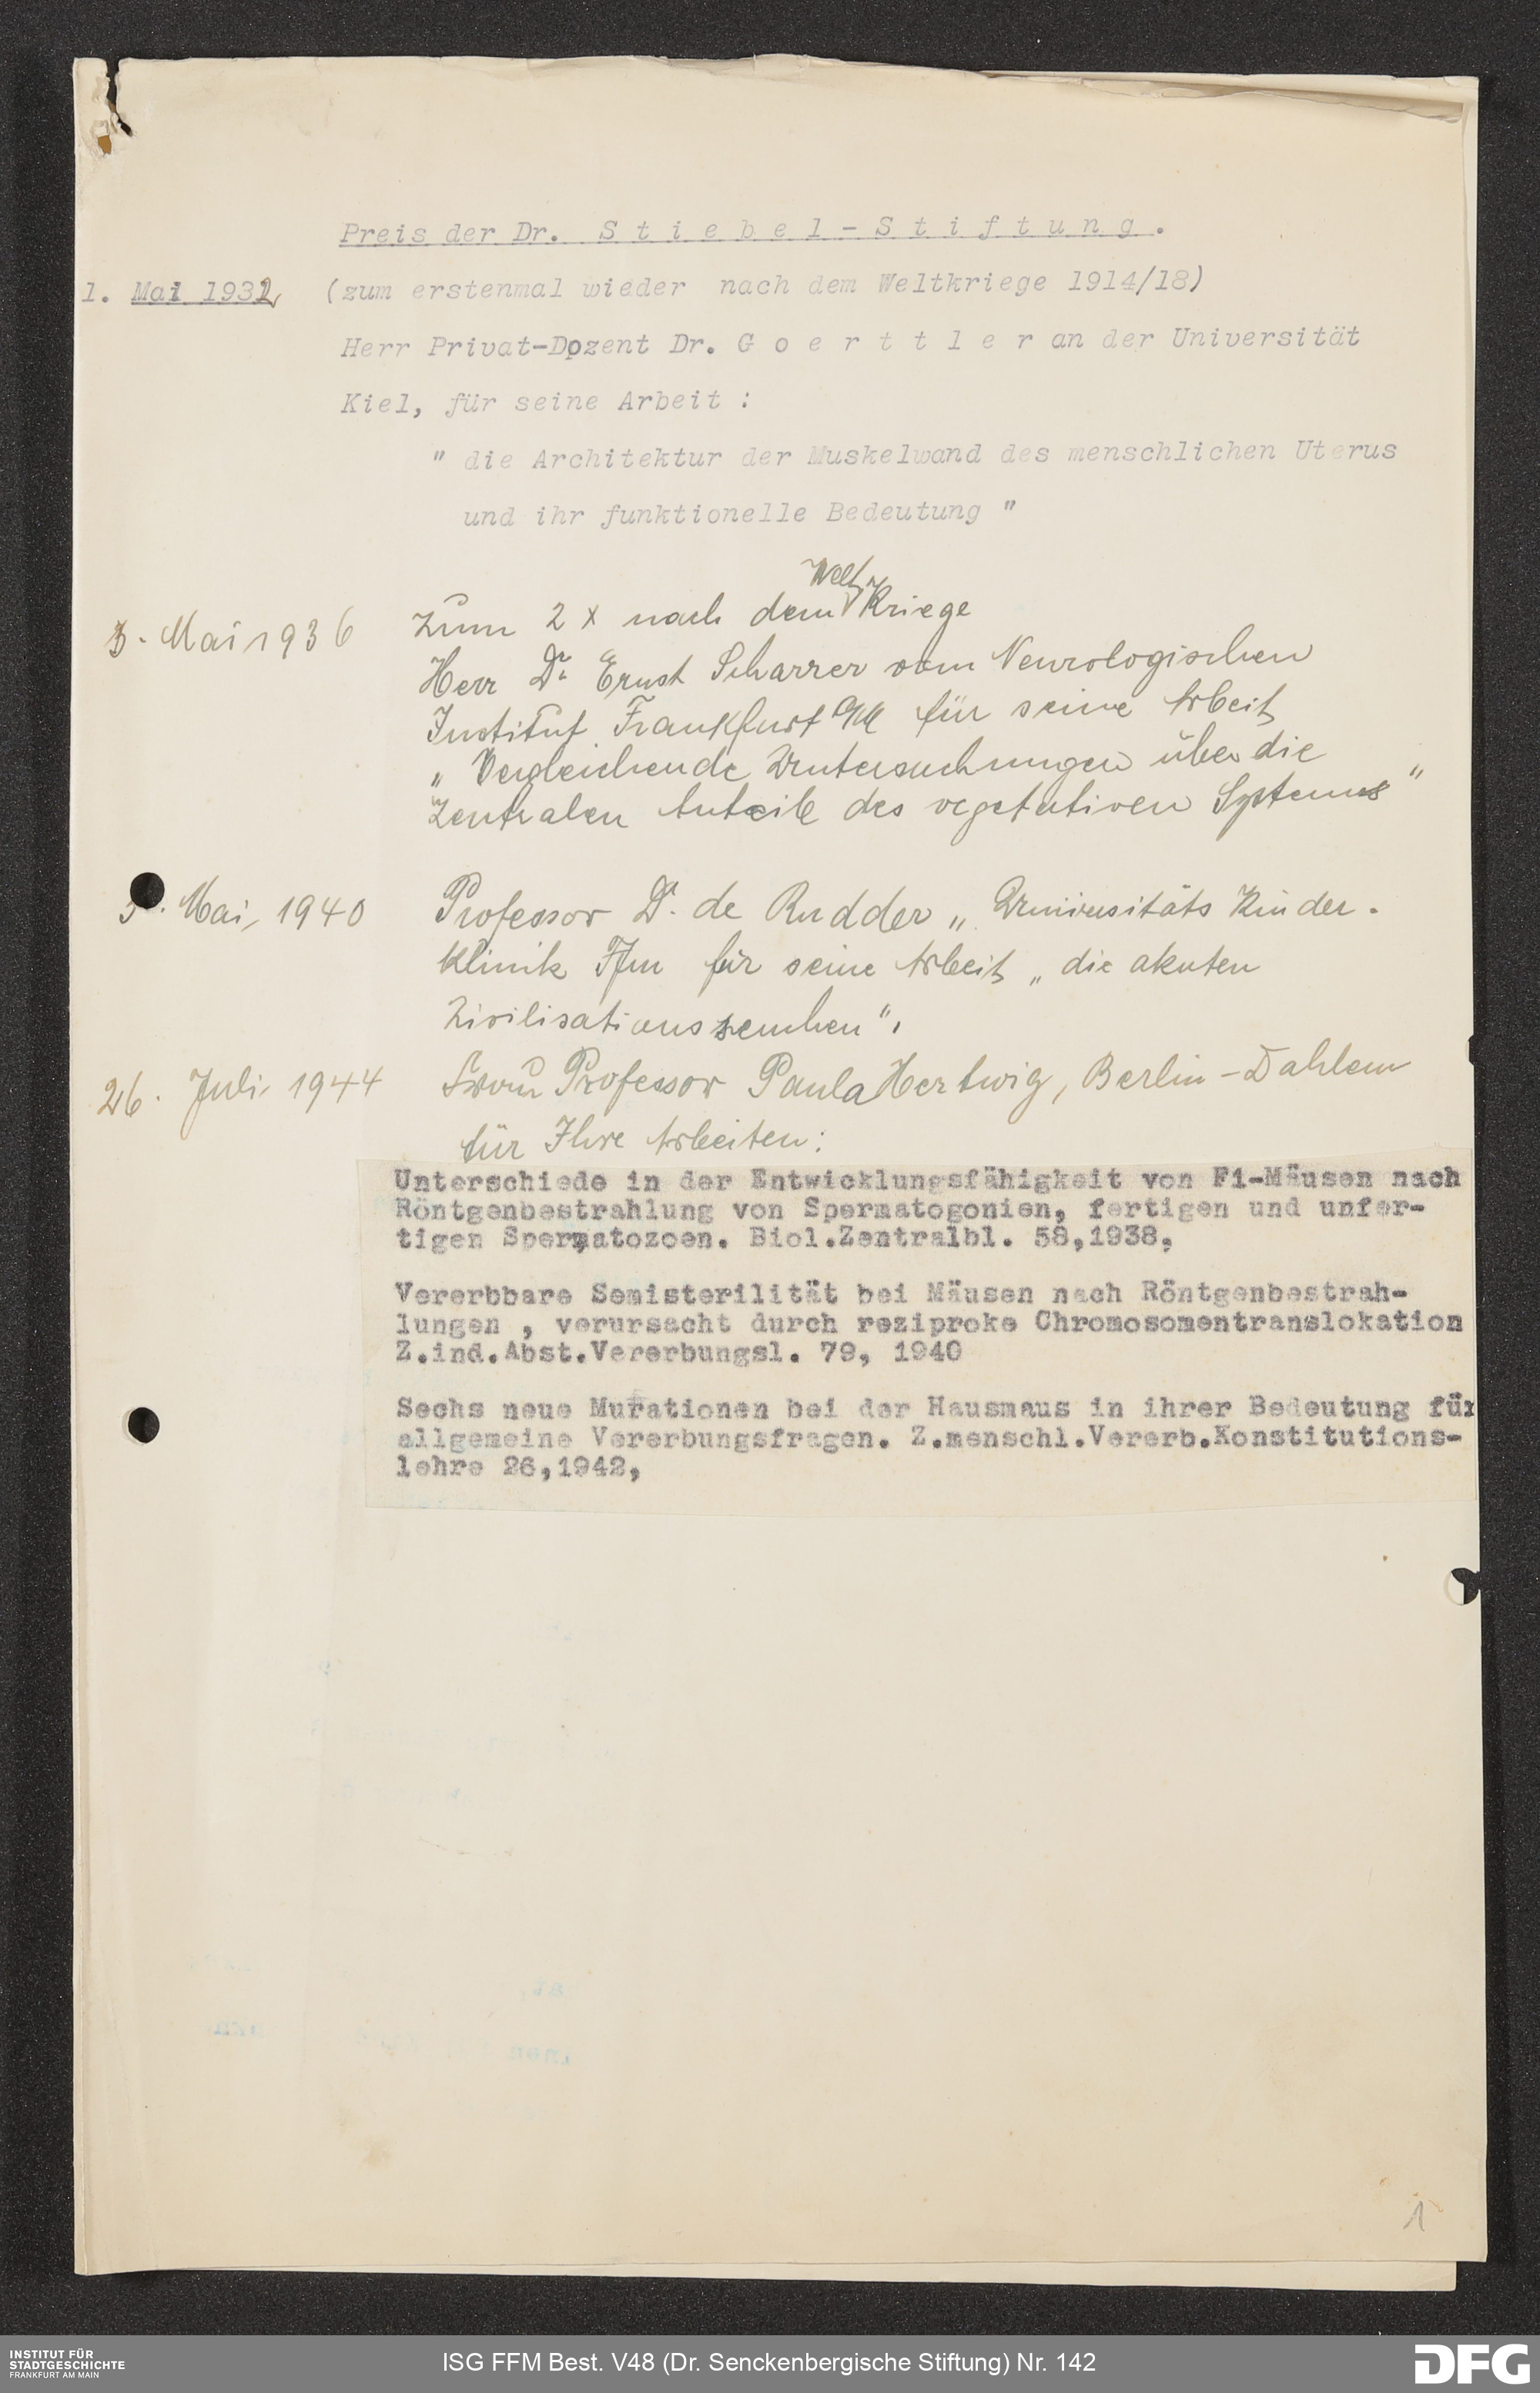 Preis der Dr. Stiebel-Stiftung.
1. Mai 1932, (zum erstenmal wieder nach dem Weltkriege 1914/18)
Herr Privat-Dozent Dr. Goerttler an der Universität
Kiel, für seine Arbeit :
" die Architektur der Muskelwand des menschlichen Uterus
und ihr funktionelle Bedeutung "
3. Mai 1936 Zum 2 x nach dem Welt Kriege
Herr Dr. Ernst Scharrer vom Neurologischen
Institut Frankfurt a/M für seine Arbeit
„ Vergleichende Untersuchungen über die
Zentralen Anteile des vegetativen Systems "
3. Mai, 1940 Professor Dr. de Rudder „ Universitäts Kinder.
klinik Ffm für seine Arbeit „ die akuten
Zivilisationsseuchen ".
26. Juli, 1944 Frau Professor Paula Hertwig, Berlin-Dahlem
für Ihre Arbeiten:
Unterschiede in der Entwicklungsfähigkeit von F1-Mäusen nach
Röntgenbestrahlung von Spermatogonien, fertigen und unfer-
tigen Spermatozoen. Biol.Zentralbl. 58,1938,
Vererbbare Semisterilität bei Mäusen nach Röntgenbestrah-
lungen , verursacht durch reziproke Chromosomentranslokation
Z.ind.Abst.Vererbungsl. 79, 1940
Sechs neue Mutationen bei der Hausmaus in ihrer Bedeutung für
allgemeine Vererbungsfragen. Z.menschl.Vererb.Konstitutions-
lehre 26,1942,
1
INSTITUT FÜR
STADTGESCHICHTE
FRANKFURT AM MAIN
ISG FFM Best. V48 (Dr. Senckenbergische Stiftung) Nr. 142
DFG